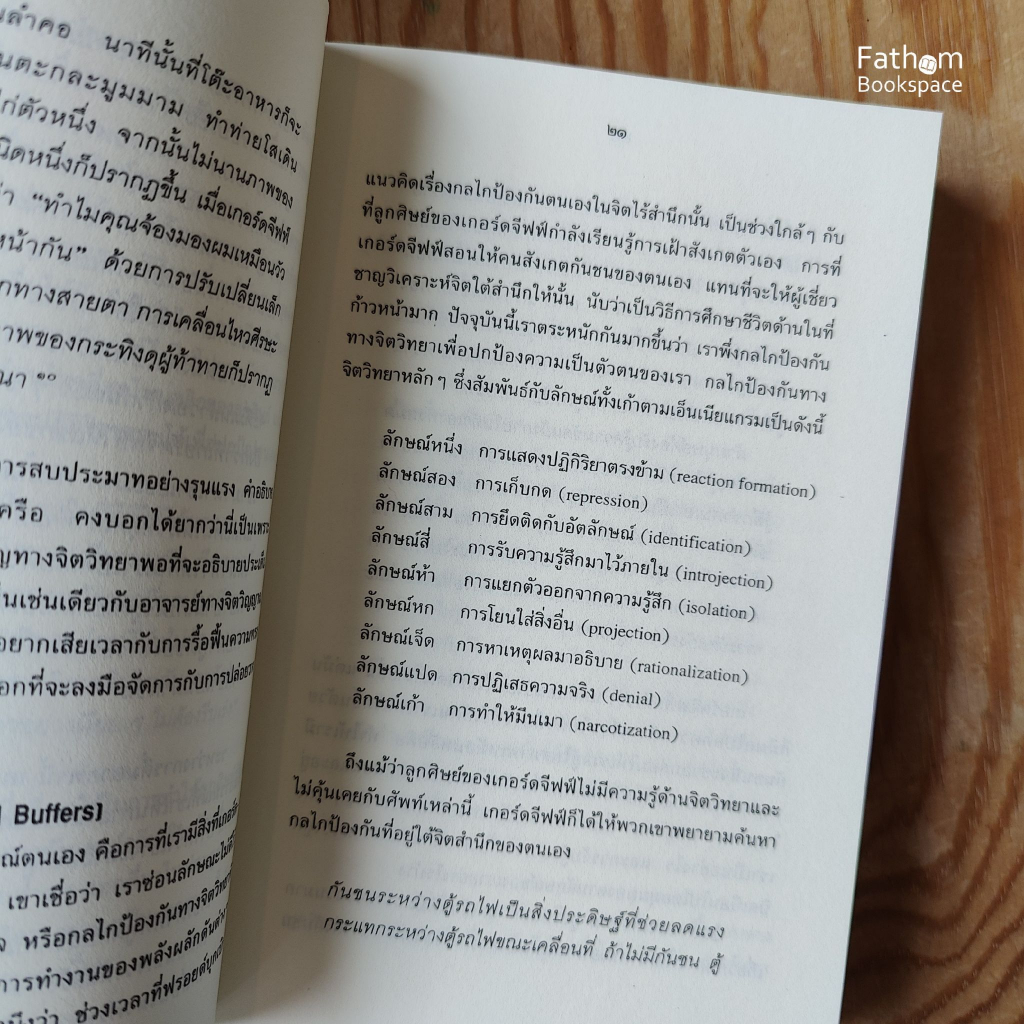 นลำคอ นาทีนั้นที่โต๊ะอาหารก็จะ
นตะกละมูมมาม ทำท่ายโสเดิน
ไก่ตัวหนึ่ง จากนั้นไม่นานภาพของ
นิดหนึ่งก็ปรากฏขึ้น เมื่อเกอร์ดจีฟฟ์
ว่า “ทำไมคุณจ้องมองผมเหมือนวัว
หน้ากัน” ด้วยการปรับเปลี่ยนเล็ก
กทางสายตา การเคลื่อนไหวศีรษะ
ภาพของกระทิงดุผู้ท้าทายก็ปรากฏ
ารสบประมาทอย่างรุนแรง คำอธิบาย
ครือ คงบอกได้ยากว่านี่เป็นเพราะ
ญทางจิตวิทยาพอที่จะอธิบายประเด็น
นเช่นเดียวกับอาจารย์ทางจิตวิญญาณ
อยากเสียเวลากับการรื้อฟื้นความ
อกที่จะลงมือจัดการกับการปล่อย
Buffers]
ณ์ตนเอง คือการที่เรามีสิ่งที่เกอร์ด
เขาเชื่อว่า เราซ่อนลักษณะไม่ดี
หรือกลไกป้องกันทางจิตวิทยา
การทำงานของพลังผลักดันต่าง
ว่า ช่วงเวลาที่ฟรอยด์
Fathom
Bookspace
๒๑
แนวคิดเรื่องกลไกป้องกันตนเองในจิตไร้สำนึกนั้น เป็นช่วงใกล้ๆ กับ
ที่ลูกศิษย์ของเกอร์ดจีฟฟ์กำลังเรียนรู้การเฝ้าสังเกตตัวเอง การที่
เกอร์ดจีฟฟ์สอนให้คนสังเกตกันชนของตนเอง แทนที่จะให้ผู้เชี่ยว
ชาญวิเคราะห์จิตใต้สำนึกให้นั้น นับว่าเป็นวิธีการศึกษาชีวิตด้านในที่
ก้าวหน้ามาก ปัจจุบันนี้เราตระหนักกันมากขึ้นว่า เราพึ่งกลไกป้องกัน
ทางจิตวิทยาเพื่อปกป้องความเป็นตัวตนของเรา กลไกป้องกันทาง
จิตวิทยาหลักๆ ซึ่งสัมพันธ์กับลักษณ์ทั้งเก้าตามเอ็นเนียแกรมเป็นดังนี้
ลักษณ์หนึ่ง การแสดงปฏิกิริยาตรงข้าม (reaction formation)
ลักษณ์สอง การเก็บกด (repression)
ลักษณ์สาม การยึดติดกับอัตลักษณ์ (identification)
ลักษณ์สี่ การรับความรู้สึกมาไว้ภายใน (introjection)
ลักษณ์ห้า การแยกตัวออกจากความรู้สึก (isolation)
ลักษณ์หก การโยนใส่สิ่งอื่น (projection)
ลักษณ์เจ็ด การหาเหตุผลมาอธิบาย (rationalization)
ลักษณ์แปด การปฏิเสธความจริง (denial)
ลักษณ์เก้า การทำให้มึนเมา (narcotization)
ถึงแม้ว่าลูกศิษย์ของเกอร์ดจีฟฟ์ไม่มีความรู้ด้านจิตวิทยาและ
ไม่คุ้นเคยกับศัพท์เหล่านี้ เกอร์ดจีฟฟ์ก็ได้ให้พวกเขาพยายามค้นหา
กลไกป้องกันที่อยู่ใต้จิตสำนึกของตนเอง
กันชนระหว่างตู้รถไฟเป็นสิ่งประดิษฐ์ที่ช่วยลดแรง
กระแทกระหว่างตู้รถไฟขณะเคลื่อนที่ ถ้าไม่มีกันชน ตู้